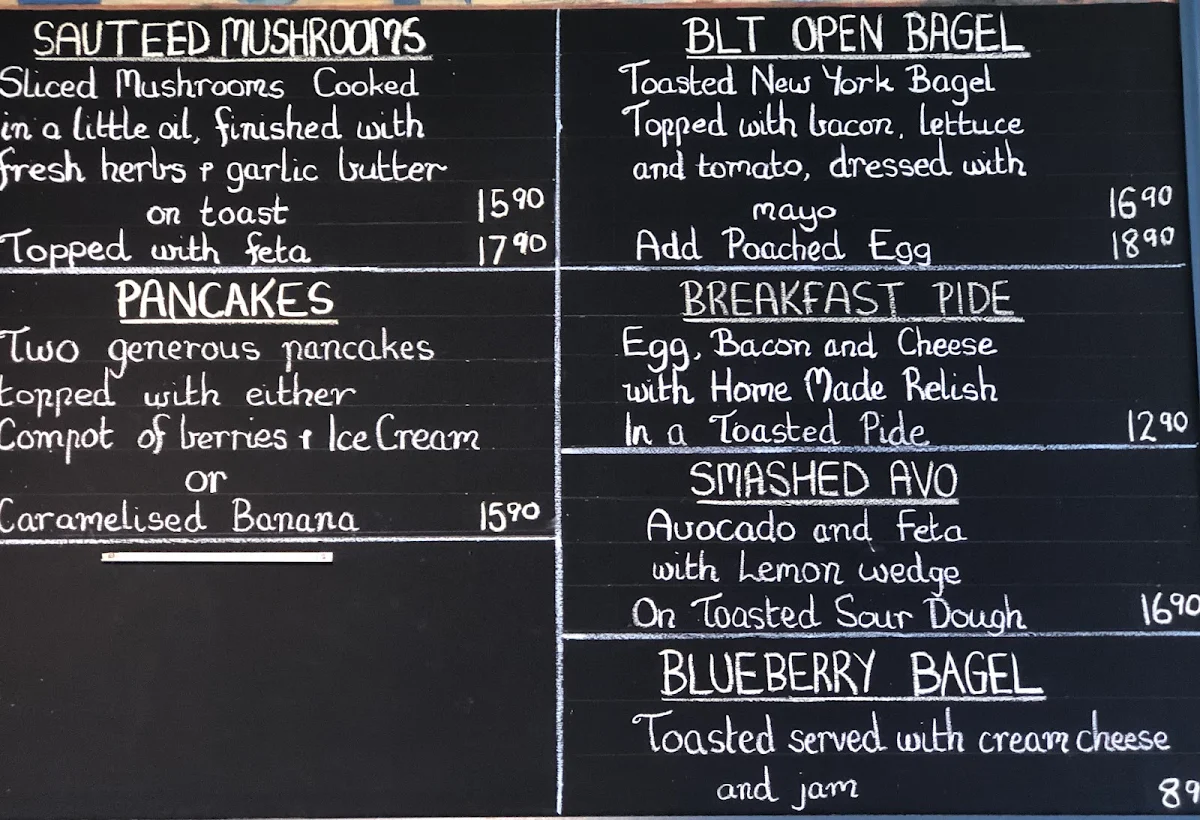 SAUTEED MUSHROOMS
Sliced Mushrooms Cooked
in a little oil, finished with
fresh herbs & garlic butter
on toast 15 90
Topped with feta 17 90
PANCAKES
Two generous pancakes
topped with either
Compot of berries & Ice Cream
or
Caramelised Banana 15 90
BLT OPEN BAGEL
Toasted New York Bagel
Topped with bacon, lettuce
and tomato, dressed with
mayo 16 90
Add Poached Egg 18 90
BREAKFAST PIDE
Egg, Bacon and Cheese
with Home Made Relish
In a Toasted Pide 12 90
SMASHED AVO
Avocado and Feta
with Lemon wedge
On Toasted Sour Dough 16 90
BLUEBERRY BAGEL
Toasted served with cream cheese
and jam 8 9